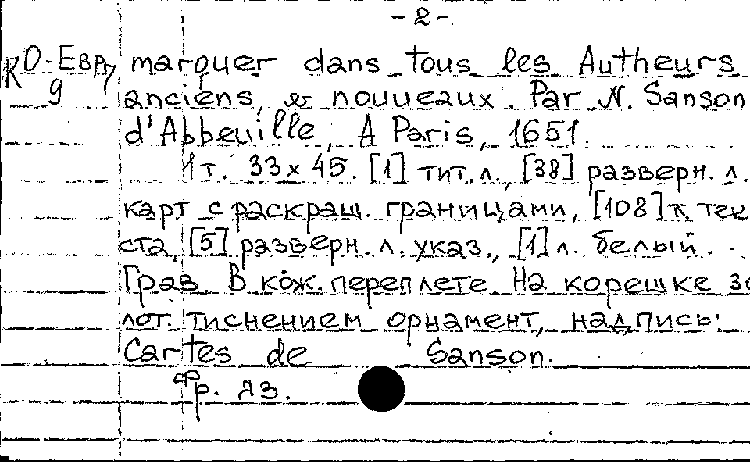 - 2 -
К О-Евр/9 marquer dans tous les Autheurs
anciens, & nouueaux. Par N. Sanson
d'Abbeuille, A Paris, 1651.
1 т. 33 x 45. [1] тит. л., [38] разверн. л.
карт с раскраш. границами, [108] л. тек
ста, [5] разверн. л. указ., [1] л. белый.
Грав. В кож. переплете. На корешке зо
лот. тиснением орнамент, надпись:
Cartes de Sanson.
Фр. яз.